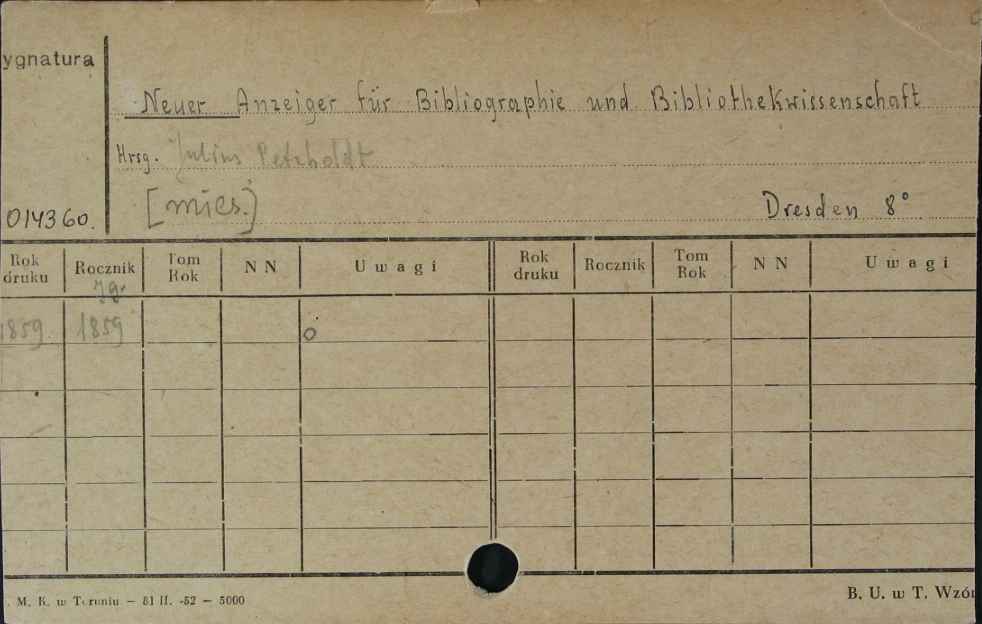 ygnatura
Neuer Anzeiger für Bibliographie und Bibliothekwissenschaft
Hrsg. Julius Petzholdt
014360. [mies.] Dresden 8°
Rok druku Rocznik Tom Rok N N Uwagi Rok druku Rocznik Tom Rok N N Uwagi
Jg.
1859 1859
M. K. w Toruniu — 51 II. -52 — 5000
B. U. w T. Wzó